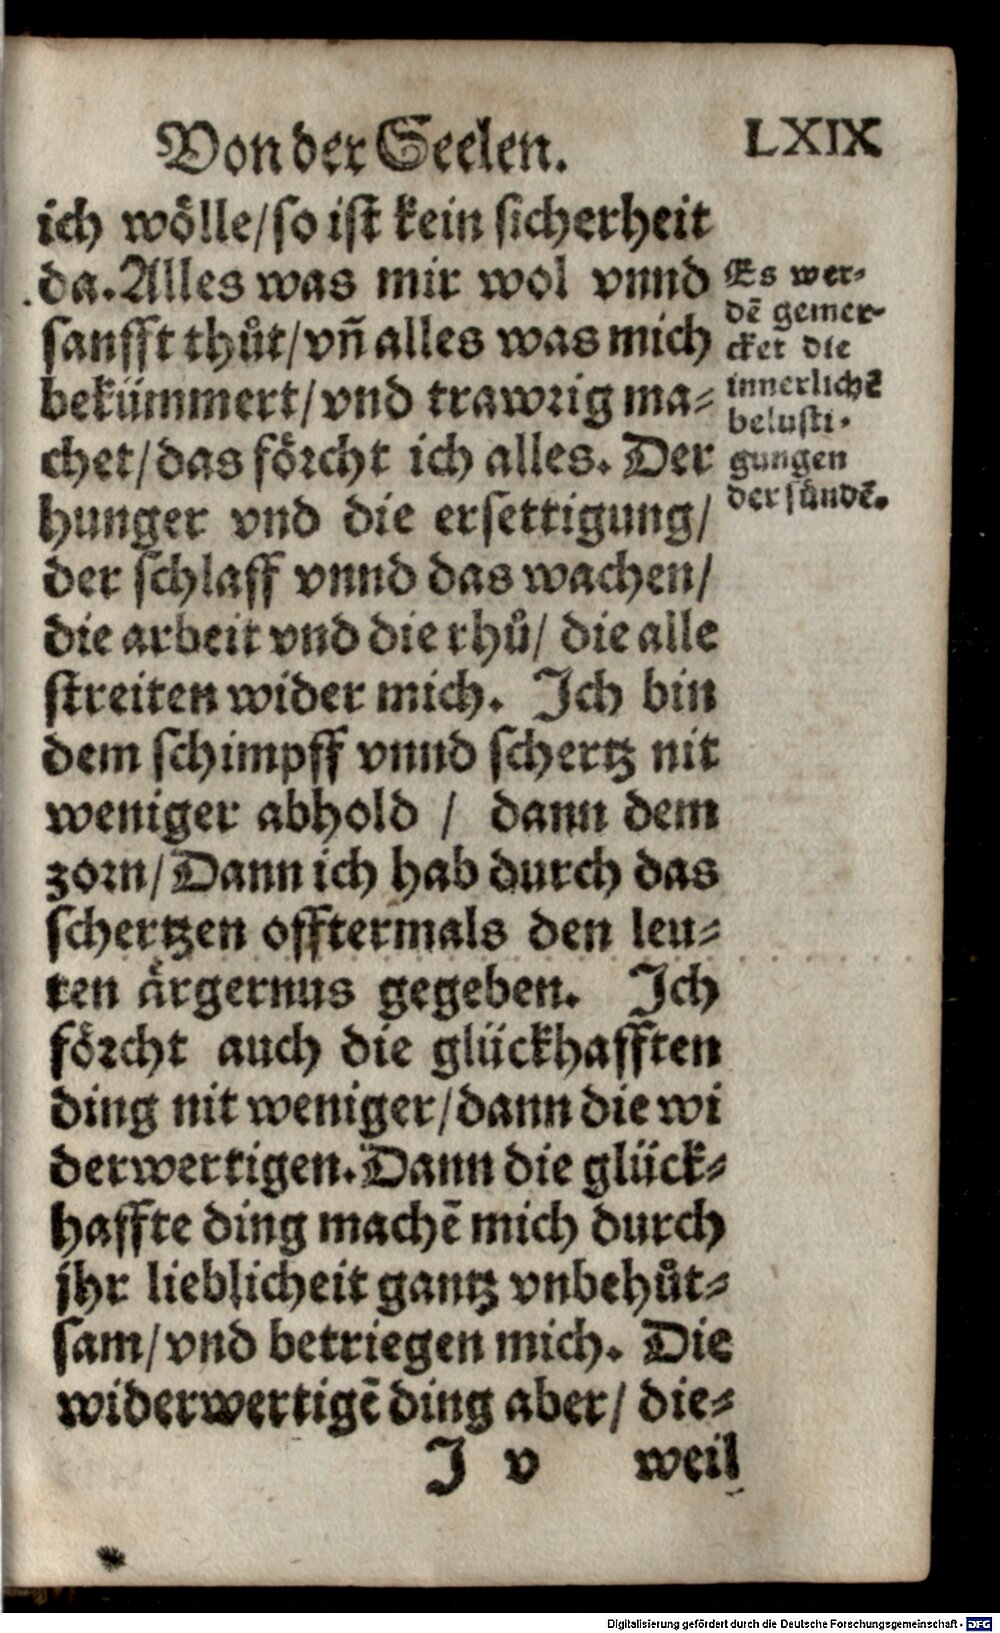 Von der Seelen.
LXIX
ich wölle/so ist kein sicherheit
da. Alles was mir wol vnnd
sanfft thůt/vñ alles was mich
bekümmert/vnd trawrig ma-
chet/das förcht ich alles. Der
hunger vnd die ersettigung/
der schlaff vnnd das wachen/
die arbeit vnd die rhů/ die alle
streiten wider mich. Ich bin
dem schimpff vnnd schertz nit
weniger abhold / dann dem
zorn/Dann ich hab durch das
schertzen offtermals den leu-
ten ärgernus gegeben. Ich
förcht auch die glückhafften
ding nit weniger/dann die wi
derwertigen. Dann die glück-
haffte ding machē mich durch
jhr lieblicheit gantz vnbehůt-
sam/vnd betriegen mich. Die
widerwertigē ding aber/ die-
I v weil
Es wer-
dē gemer-
cket die
innerlichē
belusti-
gungen
der sündē.
Digitalisierung gefördert durch die Deutsche Forschungsgemeinschaft - DFG